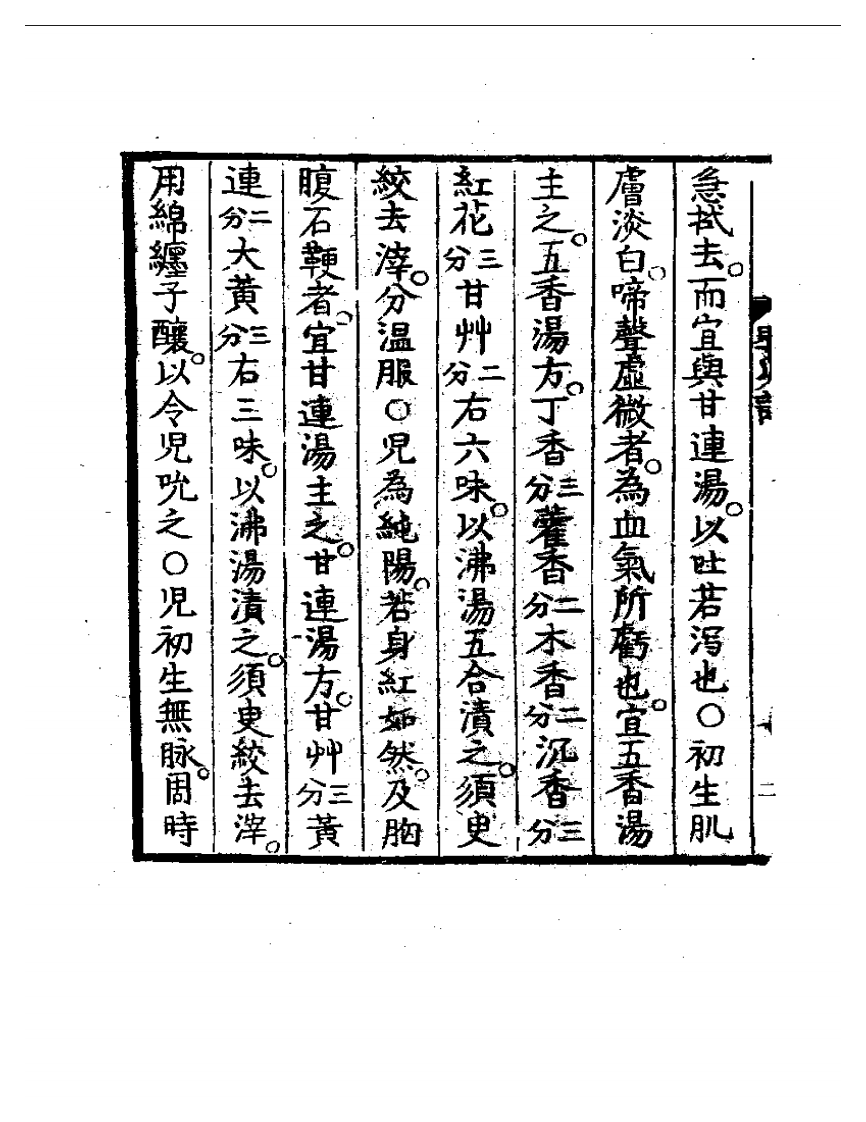 急拭去。而宜與甘連湯。以吐若瀉也○初生肌
膚淡白。啼聲虛微者。為血氣所虧也。宜五香湯
主之。五香湯方。丁香三分藿香二分木香二分沉香三分
紅花三分甘艸二分右六味。以沸湯五合漬之。須臾
絞去滓。分温服○兒為純陽。若身紅如然。及胸
腹石鞕者。宜甘連湯主之。甘連湯方。甘艸三分黃
連二分大黃三分右三味。以沸湯漬之。須臾絞去滓。
用綿纏子釀。以令兒吮之○兒初生無脉。周時
二